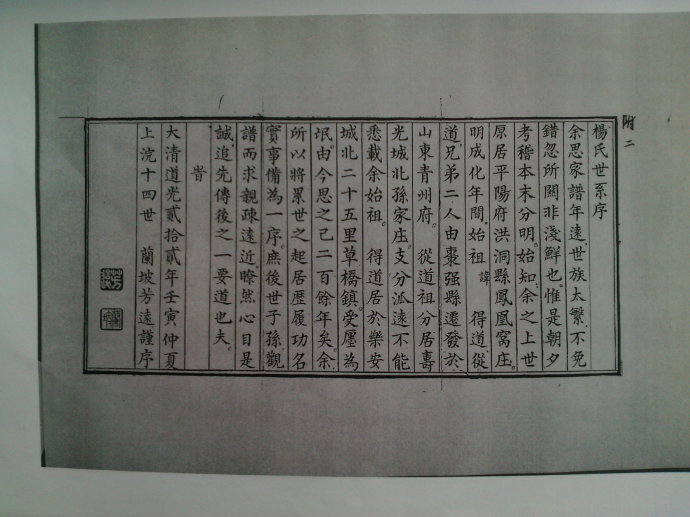 附二
楊氏世系序
余思家譜年遠世族太繁不免
錯忽所關非淺鮮也。惟是朝夕
考稽本末分明。始知余之上世
原居平陽府洪洞縣鳳凰窩庄。
明成化年間。始祖 諱 得道從
道兄弟二人由棗强縣遷發於
山東青州府。 從道祖分居壽
光城北孫家庄。支分泒遠不能
悉載余始祖。 得道居於樂安
城北二十五里草橋鎮。受廛為
氓。由今思之已二百餘年矣余
所以將累世之起居歷履功名
實事備為一序。庶後世子孫觀
譜而求親疎遠近瞭然心目是
誠追先傳後之一要道也夫。
旹
大清道光貳拾貳年壬寅仲夏
上浣十四世 蘭坡芳遠謹序